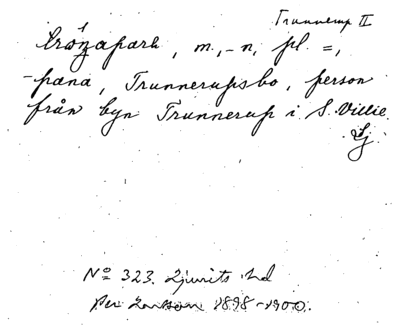 Trunnerup II
tröŋapark, m., -n, pl. =,
-pæna, Trunnerupsbo, person
från byn Trunnerup i S. Villie.
Lj
No 323. Ljunits hd
Per Larsson 1898-1900.